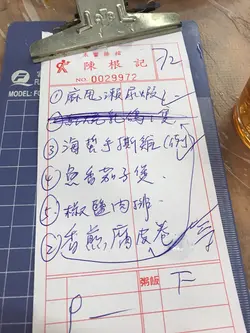 陳根記
NO. 0029972
72
① 麻甩瀨尿蝦
③ 海蜇手撕雞(例)
④ 魚香茄子煲
5. 椒鹽肉排
② 香煎腐皮卷
粥飯
下